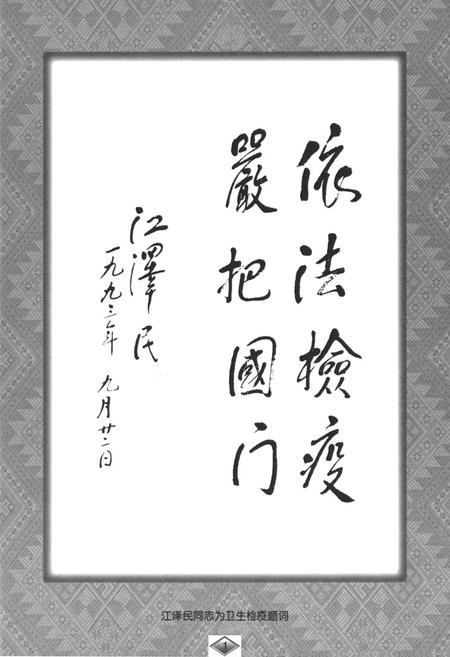 依法檢疫
嚴把國门
江澤民
一九九三年 九月廿二日
江泽民同志为卫生检疫题词
1